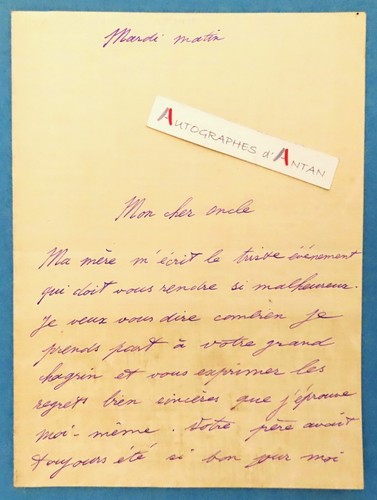 Mardi matin
AUTOGRAPHES d'ANTAN
Mon cher oncle
Ma mère m'écrit le triste événement
qui doit vous rendre si malheureux.
Je veux vous dire combien je
prends part à votre grand
chagrin et vous exprimer les
regrets bien sincères que j'éprouve
moi-même. Votre père avait
toujours été si bon pour moi